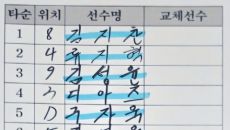 타순 위치 선수명 교체선수
1 8 김지찬
2 4 류지혁
3 9 김성윤
4 디아즈
5 D 구자욱